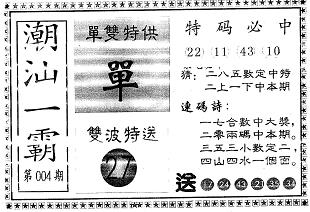 潮汕一霸
第004期
單雙特供
單
雙波特送
27
特码必中
22 11 43 10
猜：二八五數定中特
二上一下中本期
連碼詩：
一七合數中大獎，
二零兩碼中本期。
三五三小數定二，
四山四水一個面。
送 24 43 21 35 34